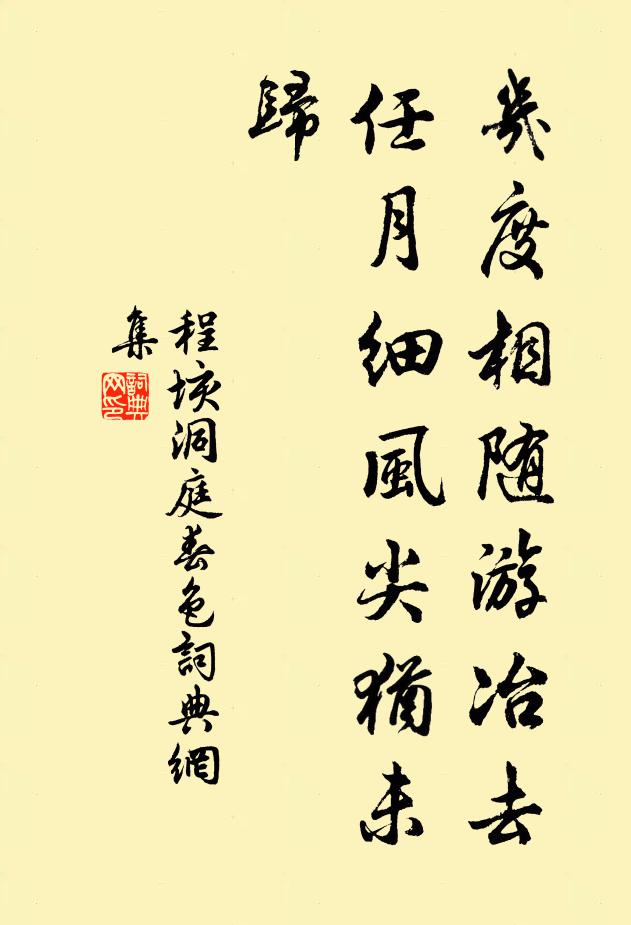 幾度相随游冶去
任月细風尖猶未
歸
程垓洞庭春色詞典網
集
詞典
网印